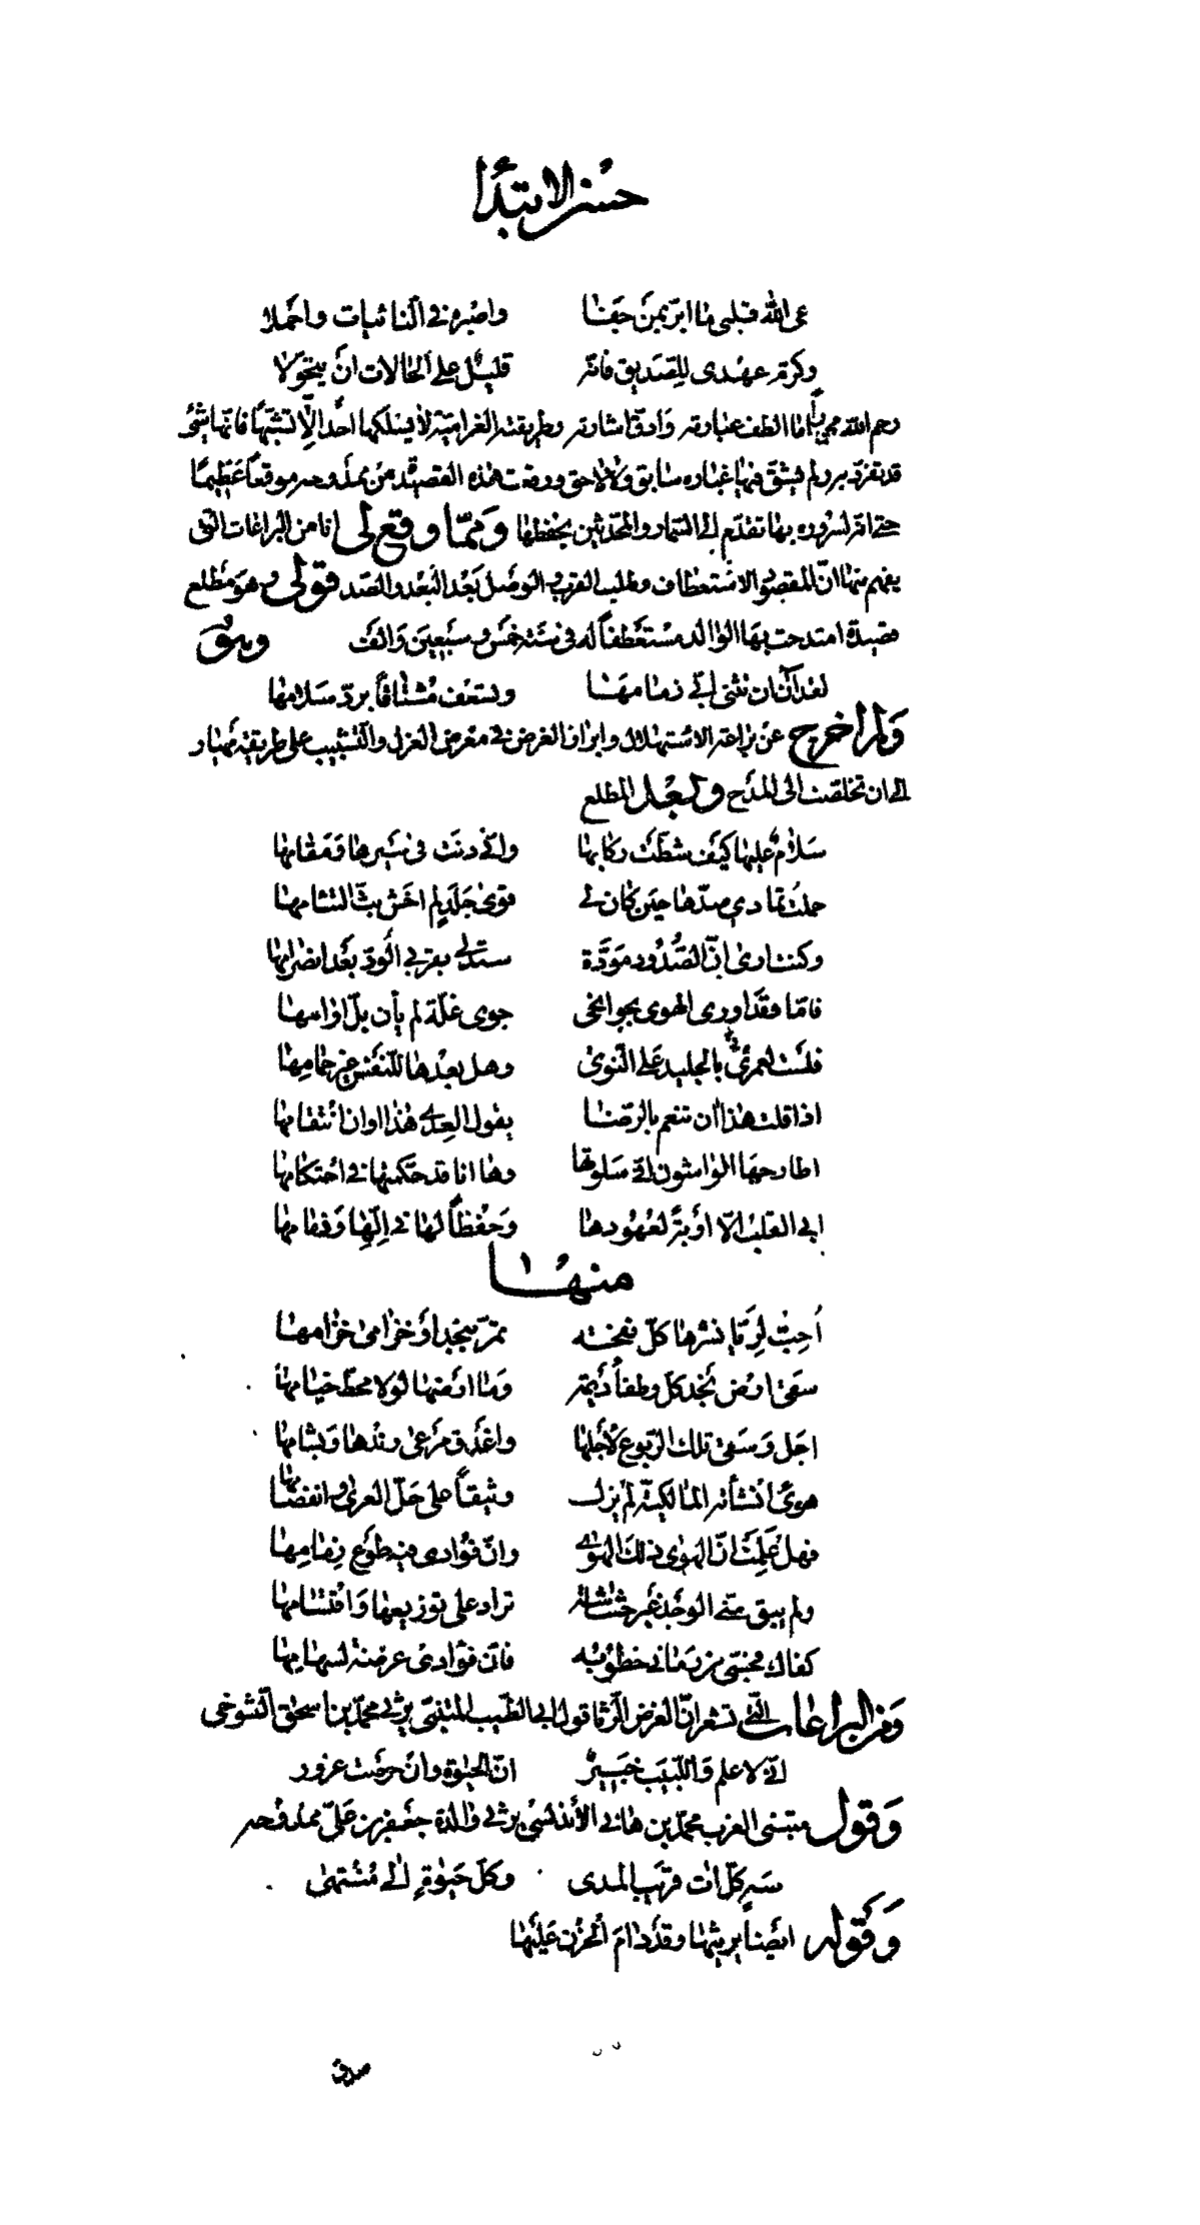 حسن الابتدأ
رعى الله قلبى ما ابرّ بمن جفا واصبره فى النائبات واحملا
وكرّم عهدى للصديق فانّه قليل على الحالات ان يتحوّلا
رحم الله مهيارا ما الطف عبارته وادقّ اشارته وطريقته الغراميّة لا يسلكها احد الّا تشبّها فانّها شئ
قد تفرّد به ولم يشقّ فيها غباره سابق ولا لاحق ووقعت هذه القصيدة من ممدوحه موقعًا عظيمًا
حتى انّه لسروره بها تقدّم الى السمار والمحدّثين بحفظها وممّا وقع لى انا من البراعات التى
يفهم منها انّ المقصود الاستعطاف وطلب القرب والوصل بعد البعد والصد قولى وهو مطلع
قصيدة امتدحت بها الوالد مستعطفًا له فى سنة خمس وسبعين والف وهو
لقد آن ان تثنى ابىّ زمامها وتسعف مشتاقًا بردّ سلامها
ولم اخرج عن براعة الاستهلال وابراز الغرض فى معرض الغزل والتشبيب على طريقة مهيار
الى ان تخلّصت الى المدح وبعد المطلع
سلام عليها كيف شطّت ركابها وانّى دنت فى سيرها ومقامها
حملت تمادى صدّها حين كان لى قوى جلد لم اخش بتّ التئامها
وكنت ارى انّ الصدود مودّة ستدلى بقربى الودّ بعد انصرامها
فامّا وقد اورى الهوى بجوانحى جوى غلّة لم يأن بلّ اوامها
فلست لعمرى بالجليد على النوى وهل بعدها للنفس غير حمامها
اذا قلت هذا آن تنعم بالرضا يقول العدى هذا اوان انتقامها
اطارحها الواشون انّى سلوتها وها انا قد حكّمتها فى احتكامها
ابى القلب الّا اوبة لعهودها وحفظًا لها فى الّها وذمامها
منها
احبّ لريّا نشرها كلّ نفحة تمرّ بنجد او خزامى خزامها
سقى ارض نجد كلّ وطفاء ديمة وما ارضها لولا محطّ خيامها
اجل وسقى تلك الربوع لاجلها واغدق مرعى رندها وبشامها
هوى انشأته المالكيّة لم يزل وثيقًا على حلّ العرى وانفصامها
فهل علمت انّ الهوى ذلك الهوى وانّ فؤادى فيه طوع زمامها
ولم يبق منّى الوجد غير حشاشة تراد على توزيعها واقتسامها
كفاك محبّتى من زمانى خطوبه فانّ فؤادى عرضة لسهامها
ومن البراعات التى تشعر انّ الغرض الرثا قول ابى الطيّب المتنبّى يرثى محمّد بن اسحق التنوخى
انّى لاعلم واللبيب خبير انّ الحيوة وان حرصت غرور
وقول متنبى الغرب محمّد بن هانى الاندلسى يرثى والدة جعفر بن علىّ ممدوحه
سه كلّ ات قريب المدى وكلّ حيوة الى منتهى
وقوله ايضًا يرثيها وقد دام الحزن عليها
صدق